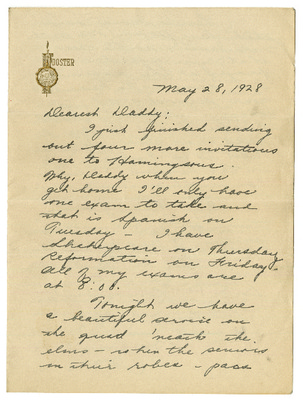 WOOSTER
May 28, 1928
Dearest Daddy:
I just finished sending
out four more invitations
one to
Why, Daddy when you
get home I'll only have
one exam to take and
that is Spanish on
Tuesday - I have
Shakespeare on Thursday
Reformation on Friday.
All of my exams are
at 8:00.
Tonight we have
a beautiful service on
the quad 'neath the
elms - when the seniors
in their robes - pass